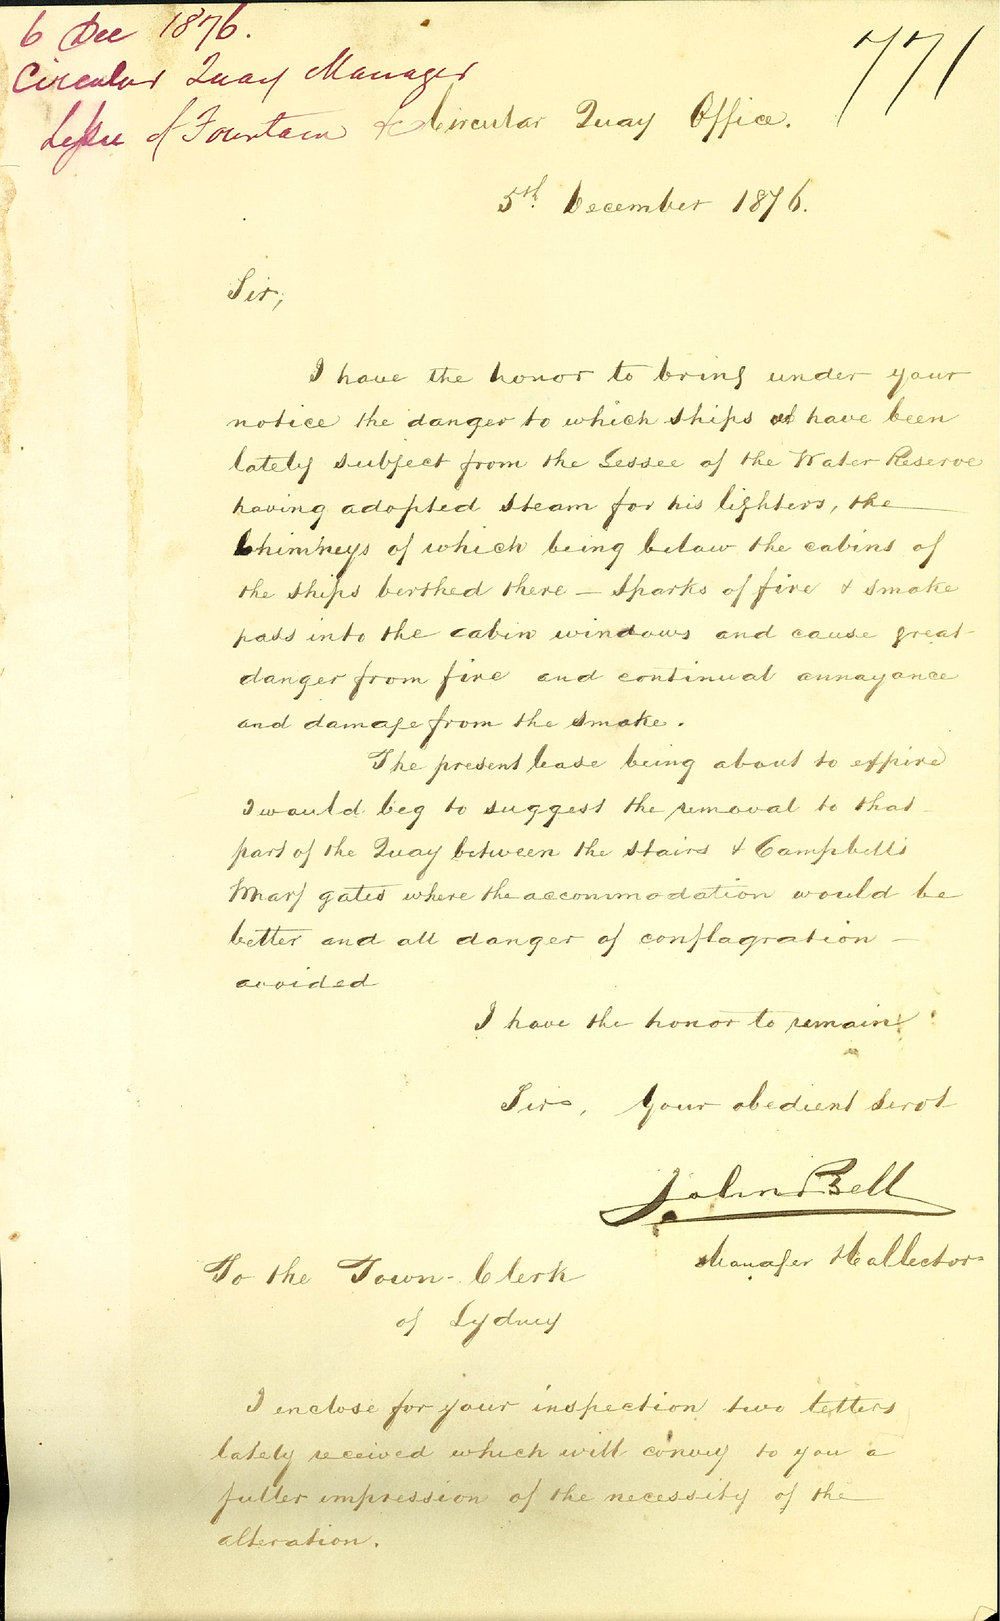 6 Dec 1876.
Circular Quay Manager
of Fountain &c
771
Circular Quay Office.
5th December 1876.
Sir,
I have the honor to bring under your
notice the danger to which ships have been
lately subject from the Lessee of the Water Reserve
having adopted steam for his lighters, the
Chimneys of which being below the cabins of
the ships berthed there — sparks of fire & smoke
pass into the cabin windows and cause great
danger from fire and continual annayance
and damage from the smoke.
The present lease being about to expire
I would beg to suggest the removal to that
part of the Quay between the stairs & Campbells
Wharf gates where the accommodation would be
better and all danger of conflagration —
avoided
I have the honor to remain
Sir, Your obedient Servt
John Bell
Manager & Collector
To the Town-Clerk
of Sydney
I enclose for your inspection two letters
lately received which will convey to you a
fuller impression of the necessity of the
alteration.